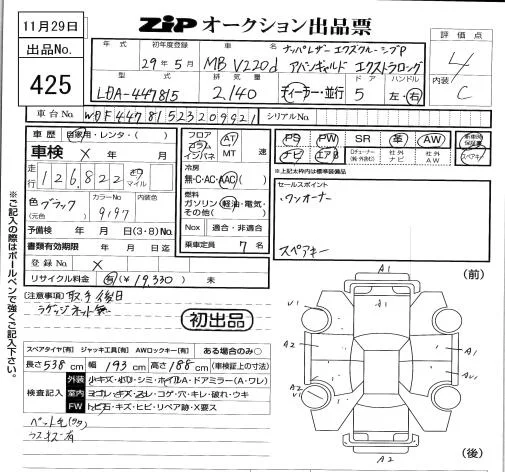 11月29日
ZIP オークション出品票
出品No.
425
評価点
4
内装
C
年式
初年度登録
29年5月
車名
ナッパレザー エクスクルーシブP
MB V220d アバンギャルド エクストラロング
型式
LDA-447815
排気量
2,140
ディーラー・並行
ドア
5
ハンドル
左・右
車台No.
WDF44781523209921
シリアルNo.
車歴 自家用・レンタ・( )
車検 X 年 月
走行 126,822 キロ マイル
色 ブラック
(元色)
カラーNo
9197
内装色
予備検 年 月 日(3・8)No.
書類有効期限 年 月 日迄
登録No. X
リサイクル料金 有(¥19,330) 未
フロア
フラット
インパネ
AT
MT
速
冷房
無・C・AC・AAC( )
燃料
ガソリン・軽油・電気・
その他( )
Nox 適合・非適合
乗車定員 7 名
PS PW SR 革 AW
ナビ エアB Dチューナー(純・外含む) 社外ナビ 社外AW
新車時保証書
スペアキー
※上記太枠内は標準装備品
セールスポイント
・ワンオーナー
スペアキー
[注意事項] 取予後日
ラゲッジネット無
初出品
スペアタイヤ[有] ジャッキ工具[有] AWロックキー[有] ある場合のみ〇
長さ538cm 幅193cm 高さ188cm (車検証上の寸法)
検査記入
外装 小キズ・小凹・シミ・ホイルA・ドアミラー(A・ワレ)
室内 ヨゴレ・キズ・スレ・コゲ・穴・キレ・破れ・ウキ
FW トビ石・キズ・ヒビ・リペア跡・X要ス
ペット毛(ワタ)
ラスキズ有
※ご記入の際はボールペンで強くご記入下さい。
(前)
A1
V1
A1
A2
A1
A2
V1
AU1
A2
(後)